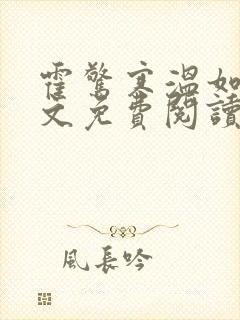 霍驚寒溫如
文免費閱讀
風長吟